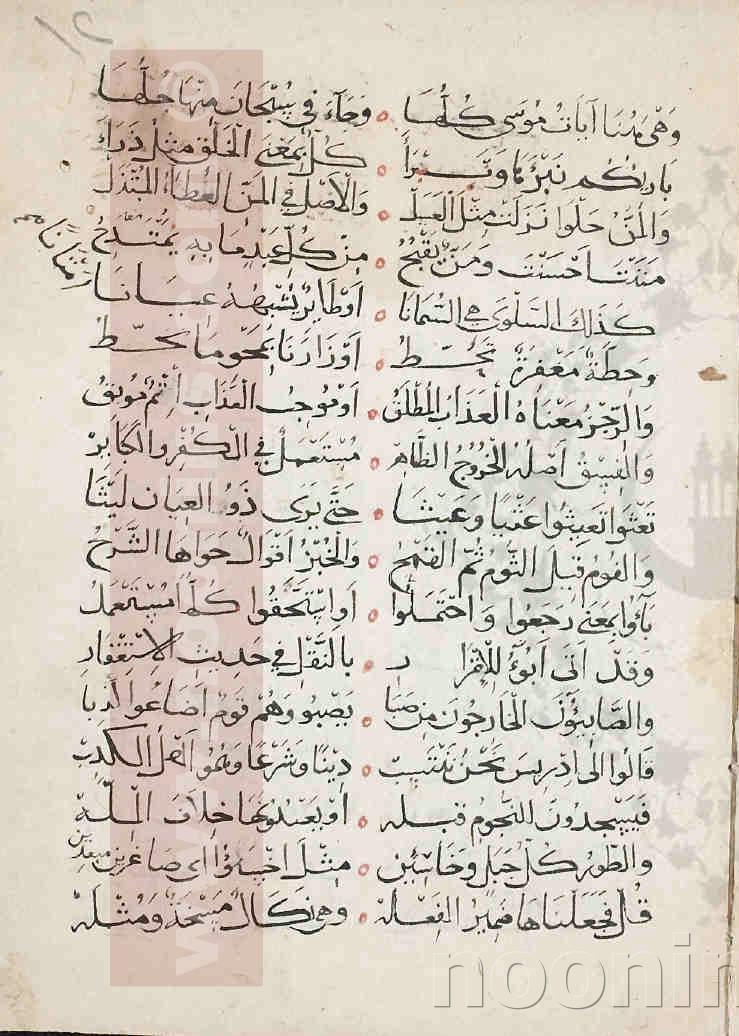 وَهْيَ هُنَا آيَاتُ مُوسَى كُلُّهَا ۰ وَجَاءَ فِي سُبْحَانَ مِنْهَا جُلُّهَا
بَارِئِكُمْ وَتَبَرَّأَ ۰ كُلٌّ بِمَعْنَى الْخَلْقِ مِثْلُ ذَرَأَ
وَالْمَنُّ حَلْوَا نَزَلَتْ مِثْلَ الْعَسَلْ ۰ وَالْأَصْلُ فِي الْمَنِّ الْعَطَاءُ
أَحْسَنْتَ وَمَنٌّ يَقْبُحُ ۰ مِنْ كُلِّ عَبْدٍ مَا بِهِ يُمْتَدَحُ
كَذَلِكَ السَّلْوَى هِيَ السُّمَانَا ۰ أَوْ طَائِرٌ يُشْبِهُهُ عَيَانَا
وَحِطَّةٌ مَغْفِرَةٌ تَحُطُّ ۰ أَوْزَارَنَا بِمَحْوِ مَا يُحَطُّ
وَالرِّجْزُ مَعْنَاهُ الْعَذَابُ الْمُطْلَقُ ۰ أَوْ مُوجِبُ الْعَذَابِ إِثْمٌ مُوبِقُ
وَالْفِسْقُ أَصْلُهُ الْخُرُوجُ الظَّاهِرْ ۰ مُسْتَعْمَلٌ فِي الْكُفْرِ وَالْكَبَائِرْ
تَعْثَوْا تَعِيثُوا عَثْيًا وَعَيْثَا ۰ حَتَّى يَرَى ذُو الْعِيَانِ لَيْثَا
وَالْفُومُ قِيلَ الثُّومُ ثُمَّ الْقَمْحُ ۰ وَالْخُبْزُ أَقْوَالٌ حَوَاهَا الشَّرْحُ
بَاءُوا بِمَعْنَى رَجَعُوا وَاحْتَمَلُوا ۰ أَوِ اسْتَحَقُّوا كُلًّا اسْتَعْمَلُوا
وَقُلْ أَتَى أَبُوءُ لِلْإِقْرَارِ ۰ بِالنَّقْلِ فِي حَدِيثِ الِاسْتِغْفَارِ
وَالصَّابِئُونَ الْخَارِجُونَ مِنْ صَبَا ۰ يَصْبُو وَهُمْ قَوْمٌ أَضَاعُوا
قَالُوا إِلَى إِدْرِيسَ نَحْنُ نَنْتَسِبْ ۰ دِينًا وَشَرْعًا وَهُمُ أَهْلُ الْكَذِبْ
فَيَسْجُدُونَ لِلنُّجُومِ قِبْلَهْ ۰ أَوْ يَعْبُدُونَهَا خِلَافَ الْمِلَّهْ
وَالطُّورُ كُلُّ جَبَلٍ وَخَاسِئِينْ ۰ مِثْلَ اخْسَئُوا أَيْ صَاغِرِينَ مبعدين
قُلْ فَجَعَلْنَاهَا ضَمِيرُ الْفَعْلَهْ ۰ وَهْيَ نَكَالٌ وَمُثْلَهْ
noonin